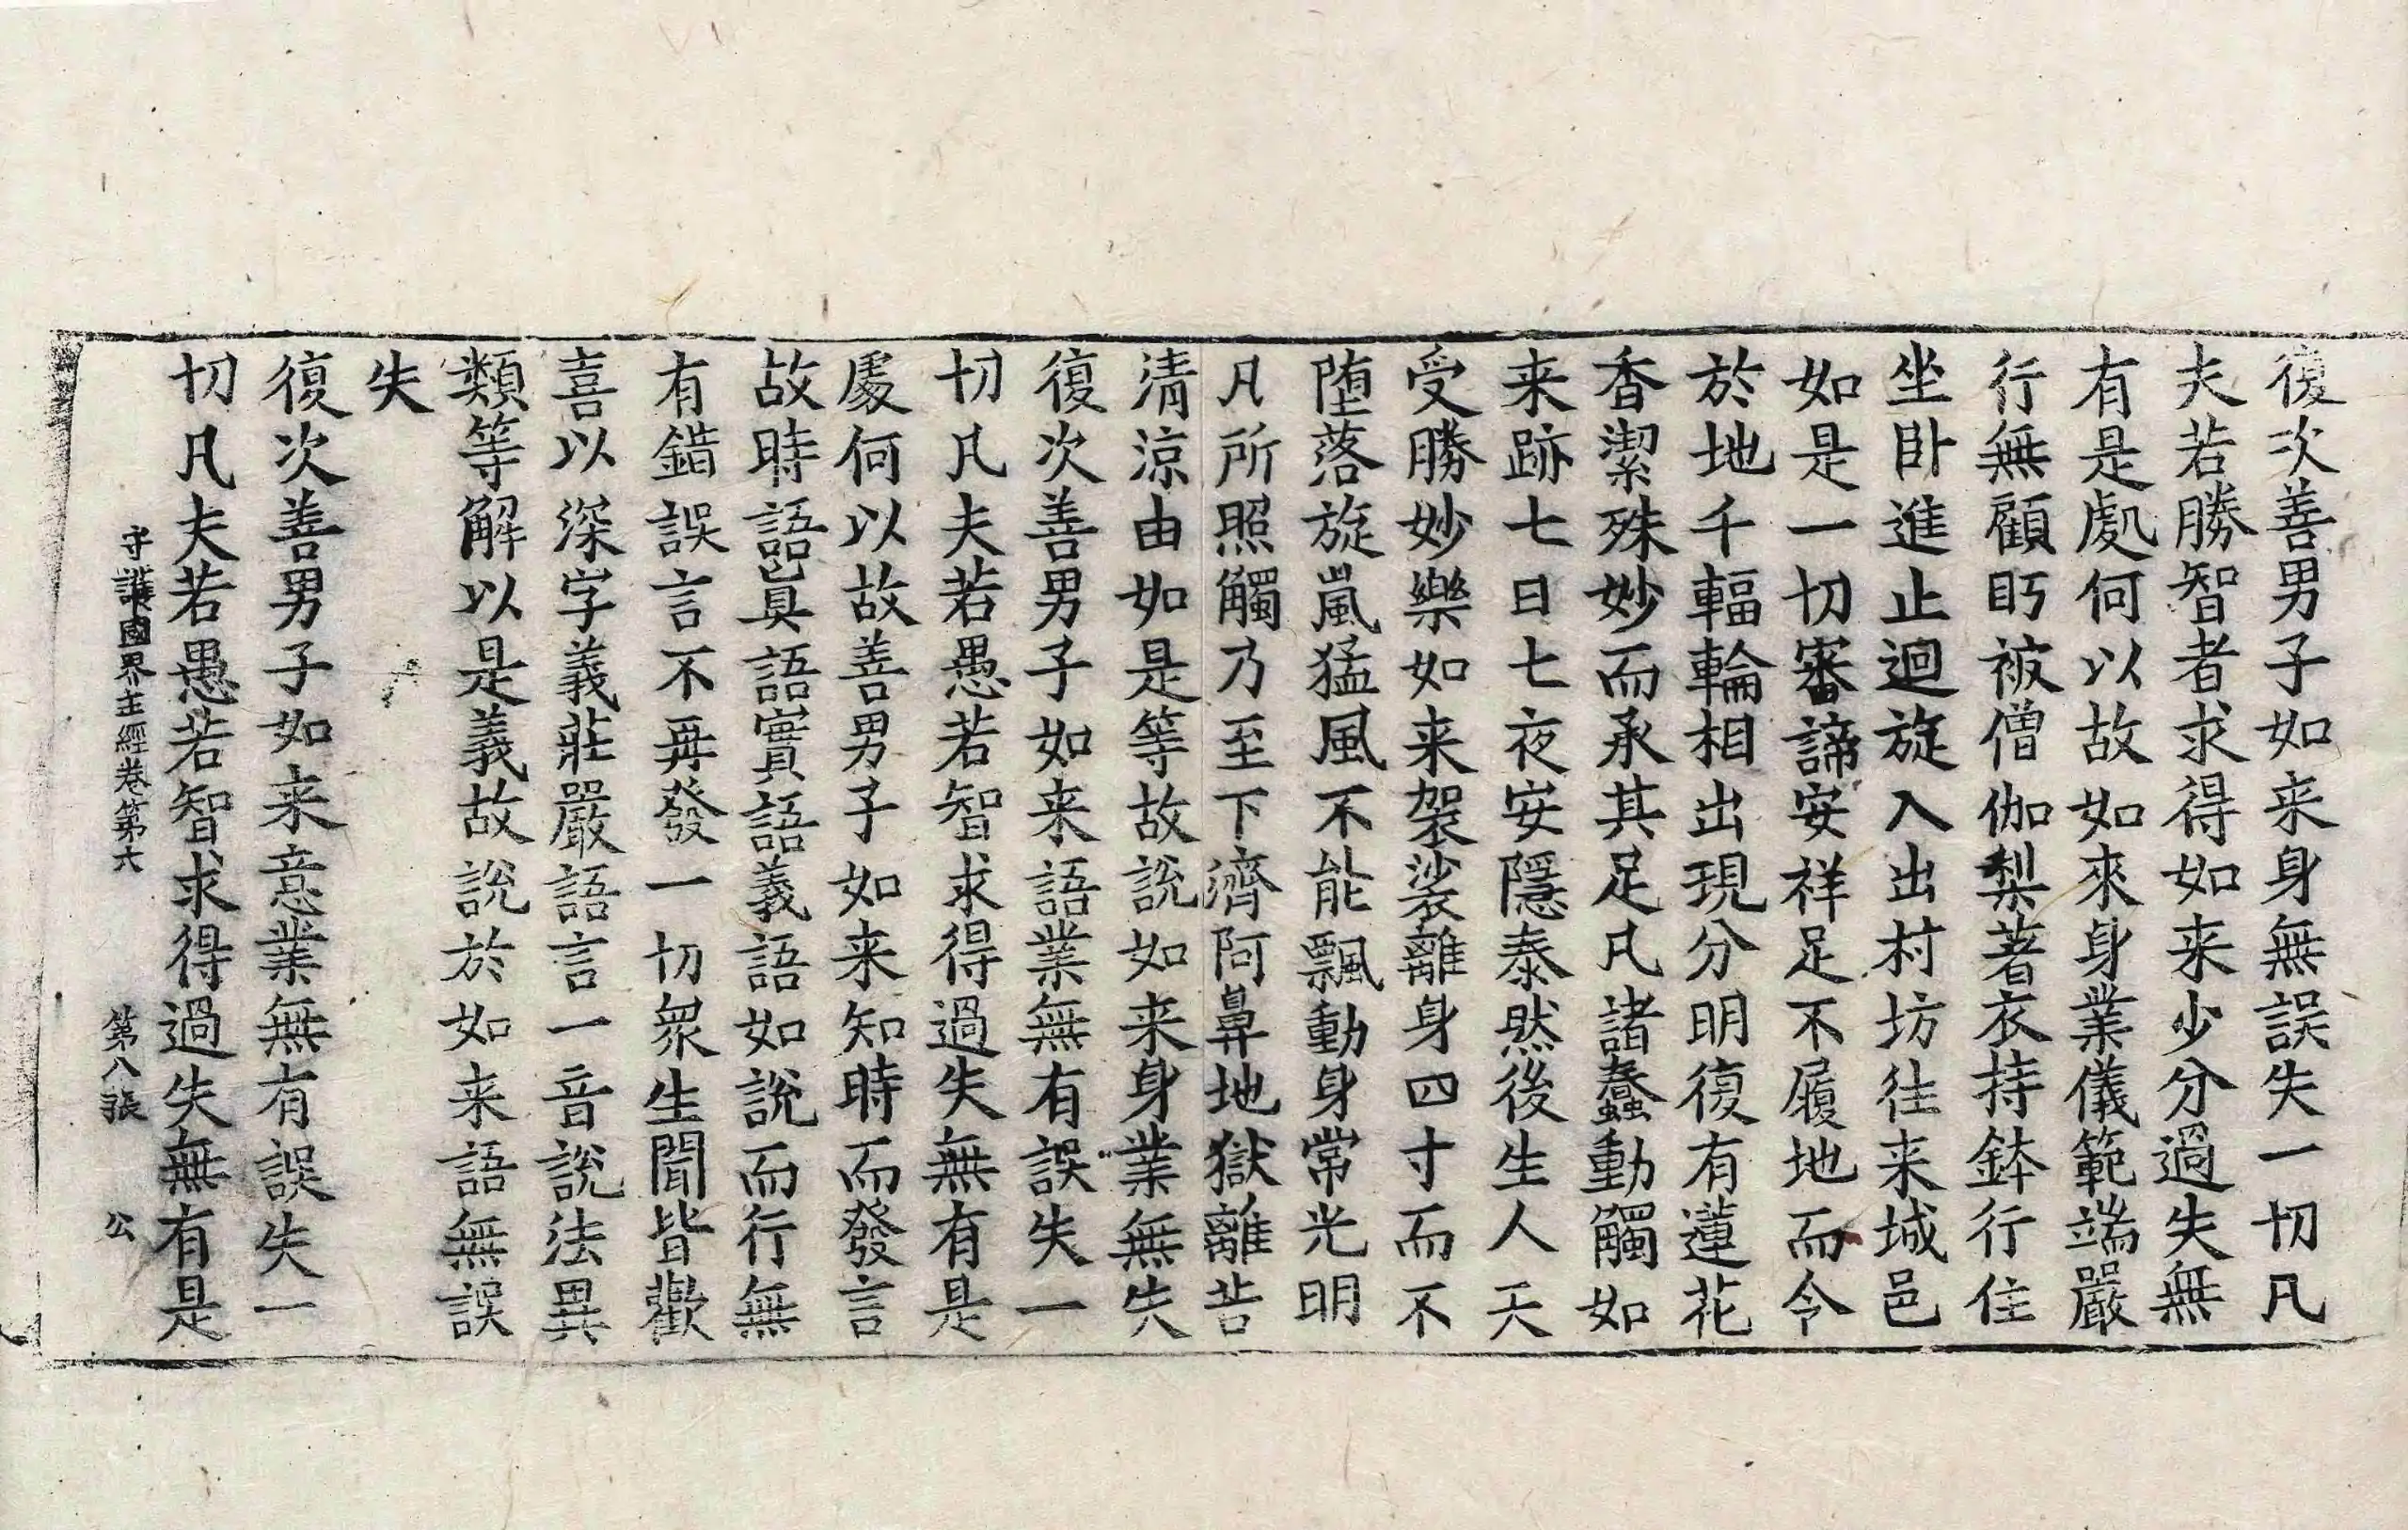 復次善男子如来身無誤失一切凡
夫若勝智者求得如来少分過失無
有是處何以故如來身業儀範端嚴
行無顧眄被僧伽梨著衣持鉢行住
坐卧進止迴旋入出村坊往来城邑
如是一切審諦安祥足不履地而令
於地千輻輪相出現分明復有蓮花
香潔殊妙而承其足凡諸蠢動觸如
来跡七日七夜安隱泰然後生人天
受勝妙樂如来袈裟離身四寸而不
墮落旋嵐猛風不能飄動身常光明
凡所照觸乃至下濟阿鼻地獄離苦
清涼由如是等故說如来身業無失
復次善男子如来語業無有誤失一
切凡夫若愚若智求得過失無有是
處何以故善男子如来知時而發言
故時語真語實語義語如說而行無
有錯誤言不再發一切衆生聞皆歡
喜以深字義莊嚴語言一音說法異
類等解以是義故說於如来語無誤
失
復次善男子如来意業無有誤失一
切凡夫若愚若智求得過失無有是
守護國界主經卷第六 第八張 公